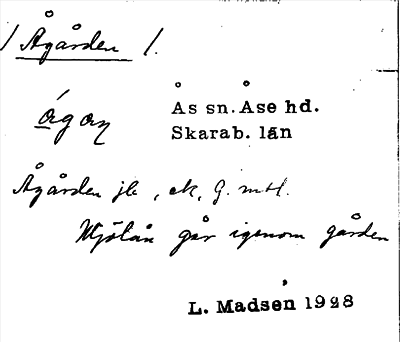 / Ågården /.
ågaŋ
Ås sn. Åse hd.
Skarab. län
Ågården jb, ek, G. mtl.
Mjölån går igenom gården
L. Madsen 1928